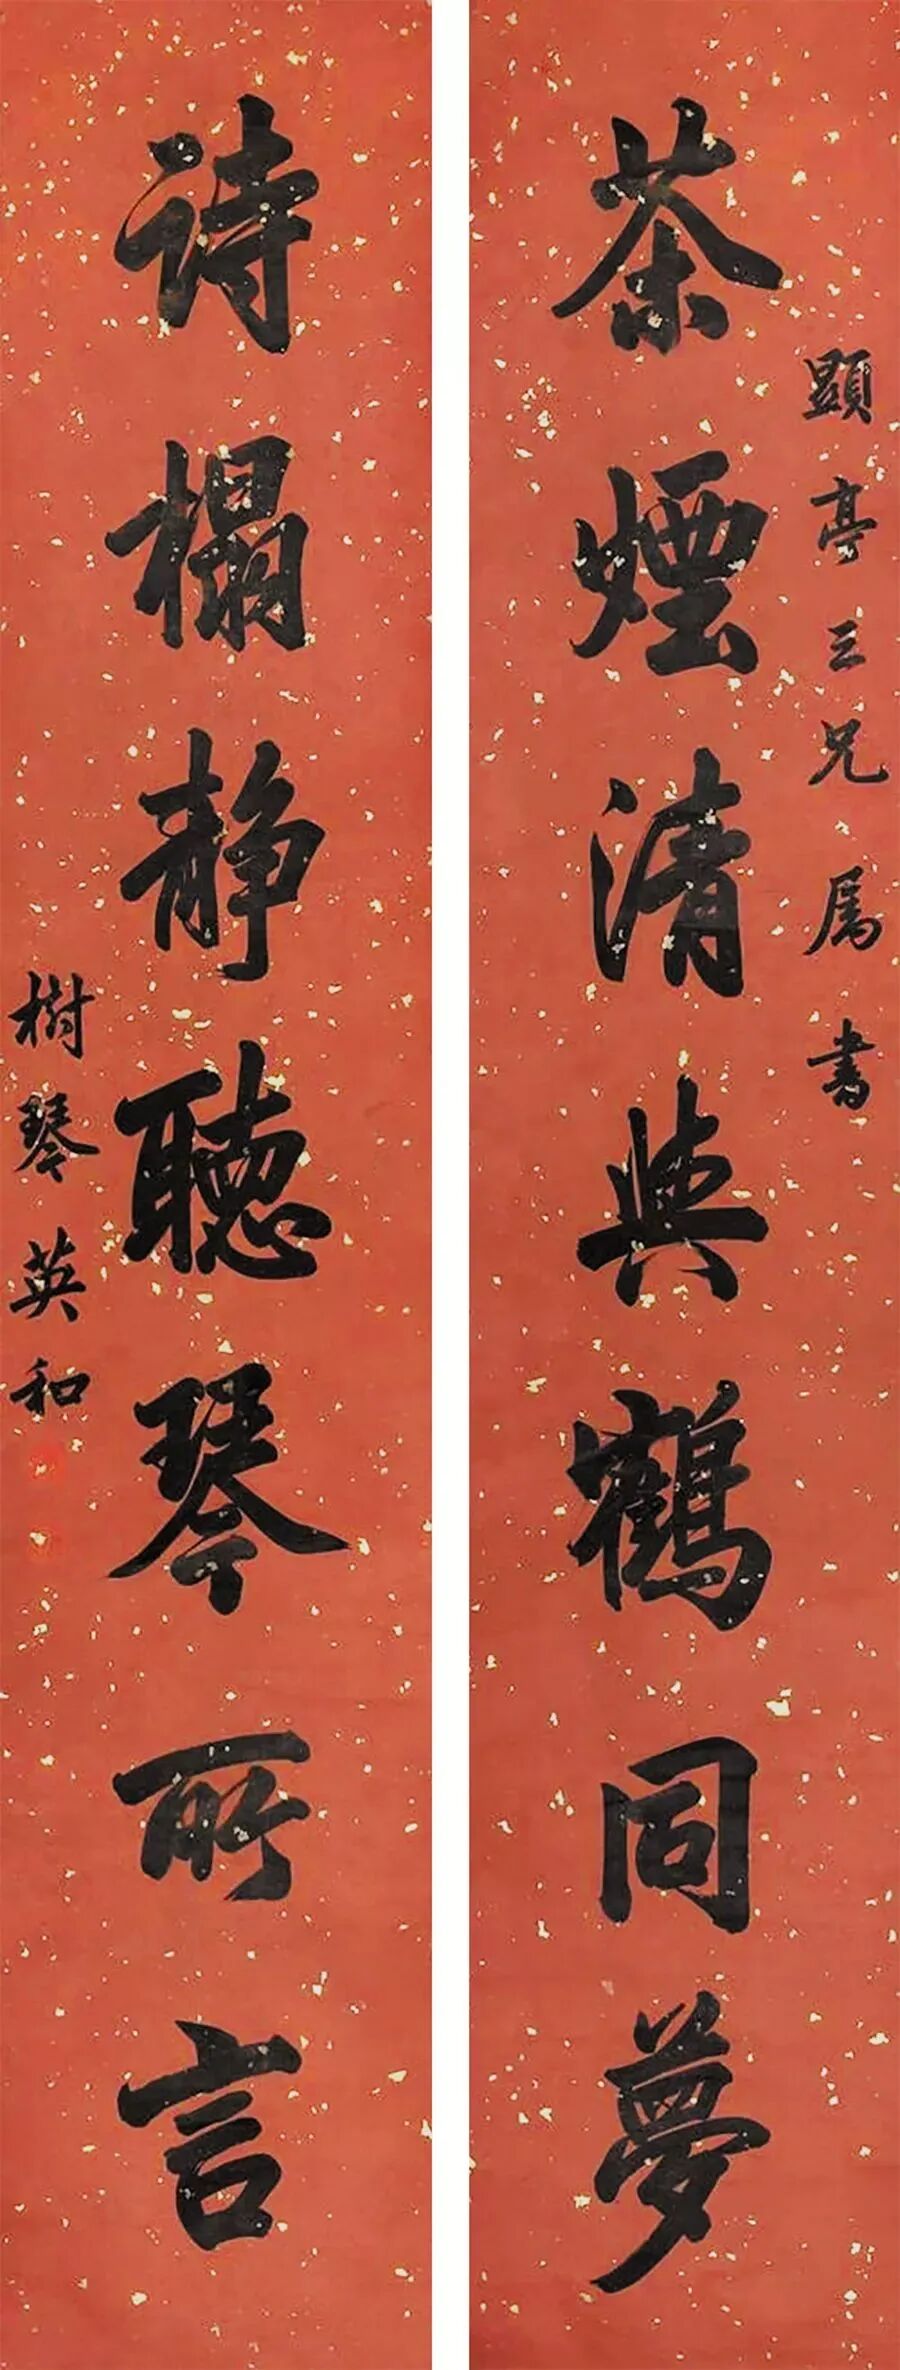 顯亭三兄属書
茶煙清與鶴同夢
詩榻静聽琴所言
樹琴英和